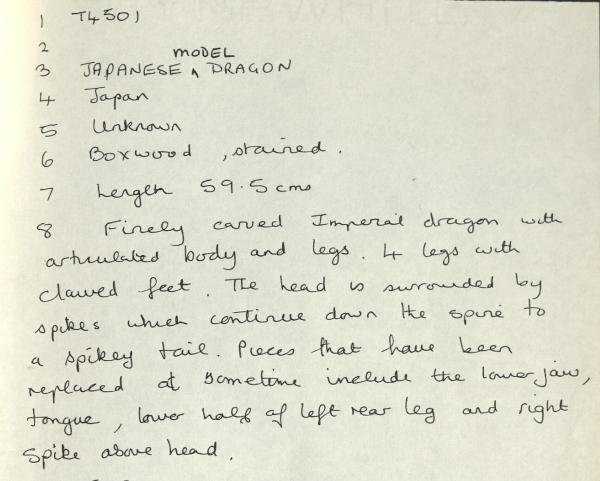 1 T4501
2
3 JAPANESE ^ MODEL DRAGON
4 Japan
5 Unknown
6 Boxwood, stained.
7 Length 59.5 cms
8 Finely carved Imperial dragon with
articulated body and legs. 4 legs with
clawed feet. The head is surrouded by
spikes which continue down the spine to
a spikey tail. Pieces that have been
replaced at sometime include the lower jaw,
tongue, lower half of left rear leg and right
spike above head.